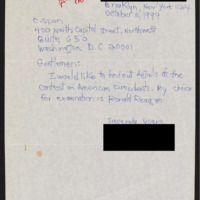 Brooklyn, New York
October 5, 1999
C-Span
400 North Capital Street, Northwest
Suite 650
Washington D.C. 20001
Gentlemen:
I would like to find out details of the
contest on American Presidents. My choice
for examination is Ronald Reagan.
Sincerely yours